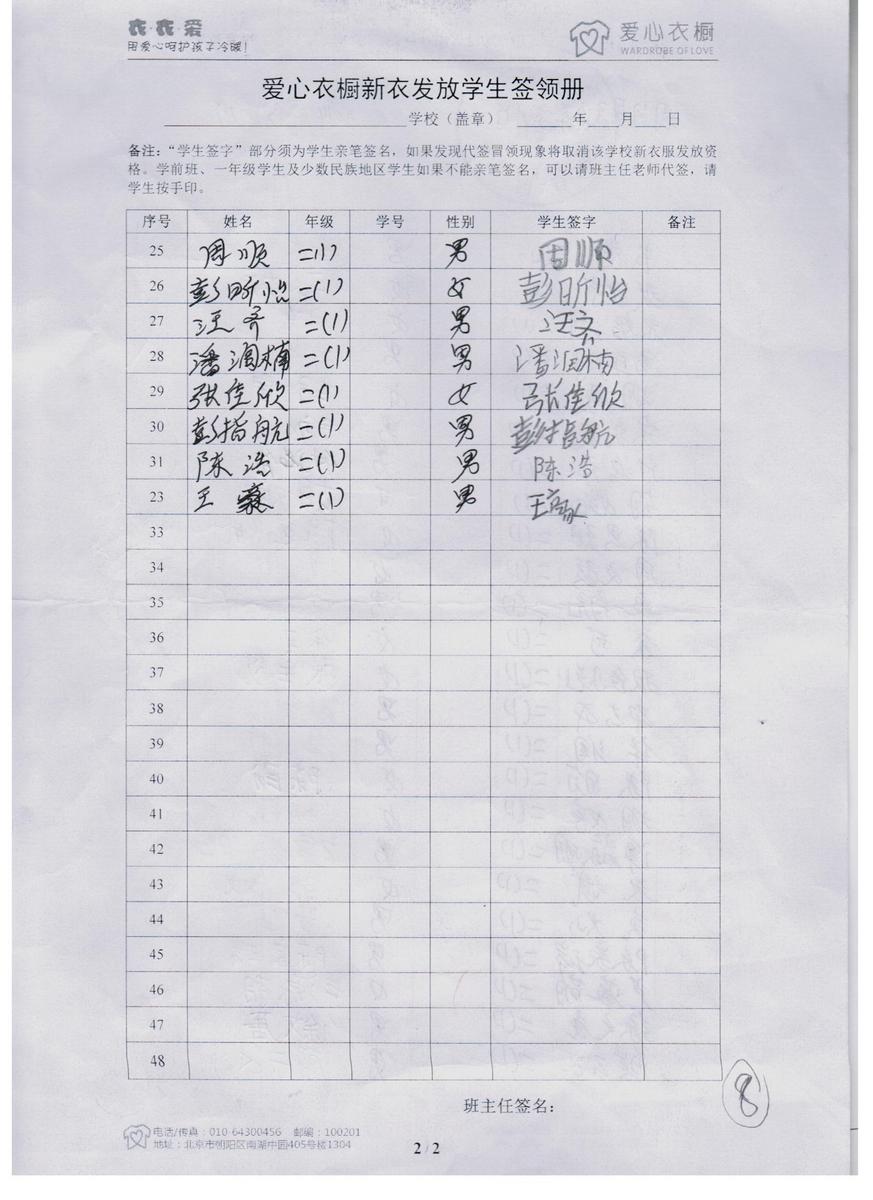 衣·衣·爱
用爱心呵护孩子冷暖!
爱心衣橱
WARDROBE OF LOVE
爱心衣橱新衣发放学生签领册
学校（盖章） 年 月 日
备注：“学生签字”部分须为学生亲笔签名，如果发现代签冒领现象将取消该学校新衣服发放资
格。学前班、一年级学生及少数民族地区学生如果不能亲笔签名，可以请班主任老师代签，请
学生按手印。
序号 姓名 年级 学号 性别 学生签字 备注
25 周顺 二(1) 男 周顺
26 彭昕怡 二(1) 女 彭昕怡
27 汪齐 二(1) 男 汪齐
28 潘润楠 二(1) 男 潘润楠
29 张佳欣 二(1) 女 张佳欣
30 彭指航 二(1) 男 彭指航
31 陈浩 二(1) 男 陈浩
23 王豪 二(1) 男 王
33
34
35
36
37
38
39
40
41
42
43
44
45
46
47
48
8
班主任签名：
电话/传真：010-64300456 邮编：100201
地址：北京市朝阳区南湖中园405号楼1304
2 / 2